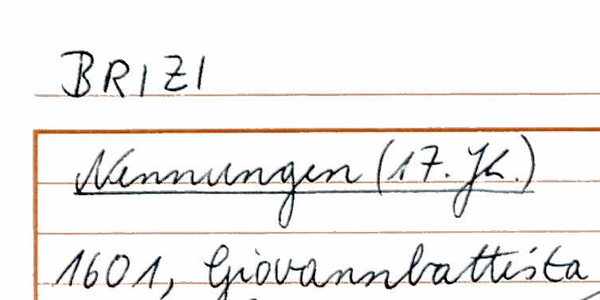 BRIZI
Nennungen (17. Jh.)
1601, Giovannbattista